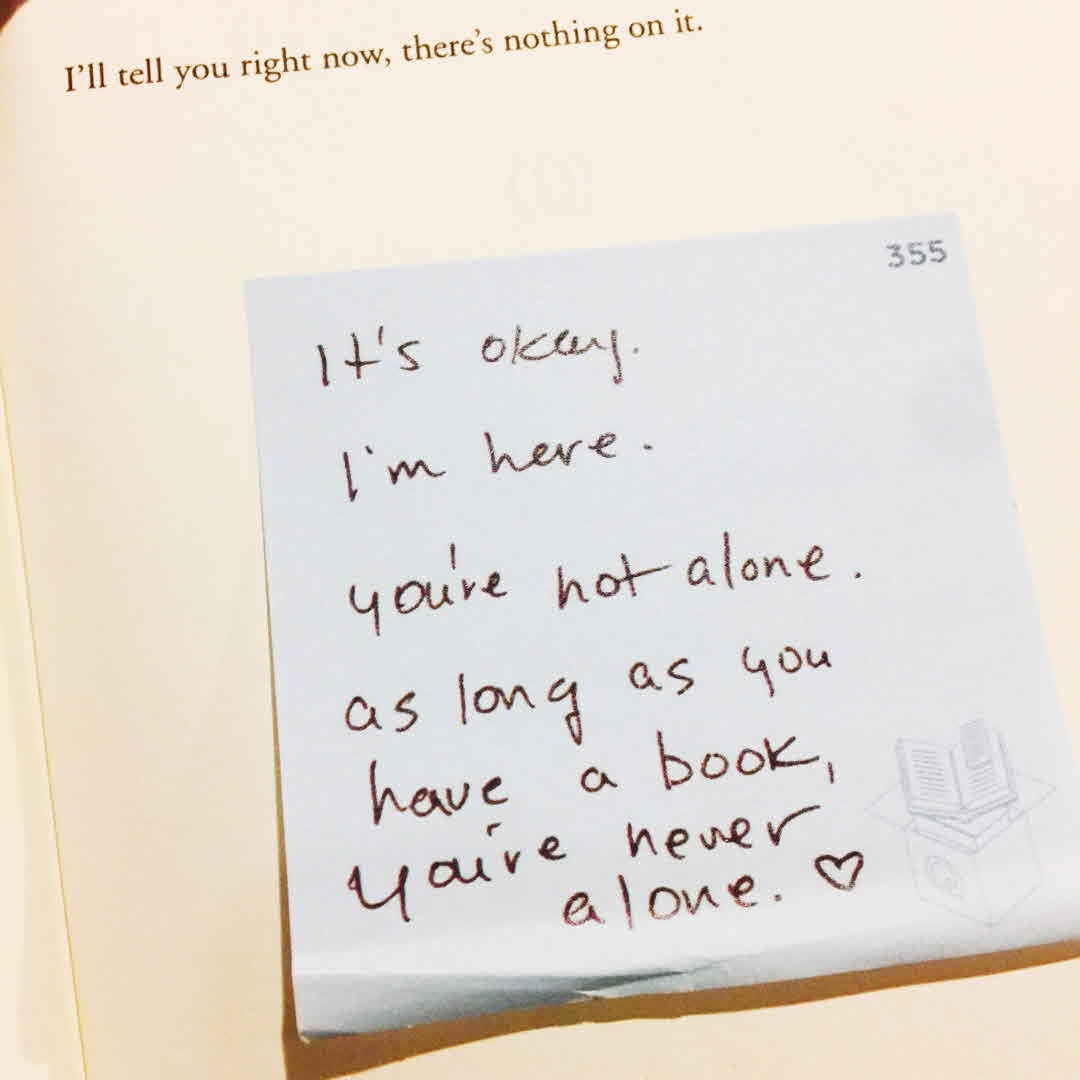 I'll tell you right now, there's nothing on it.
355
It's okay.
I'm here.
you're not alone.
as long as you
have a book,
you're never
alone. ♡